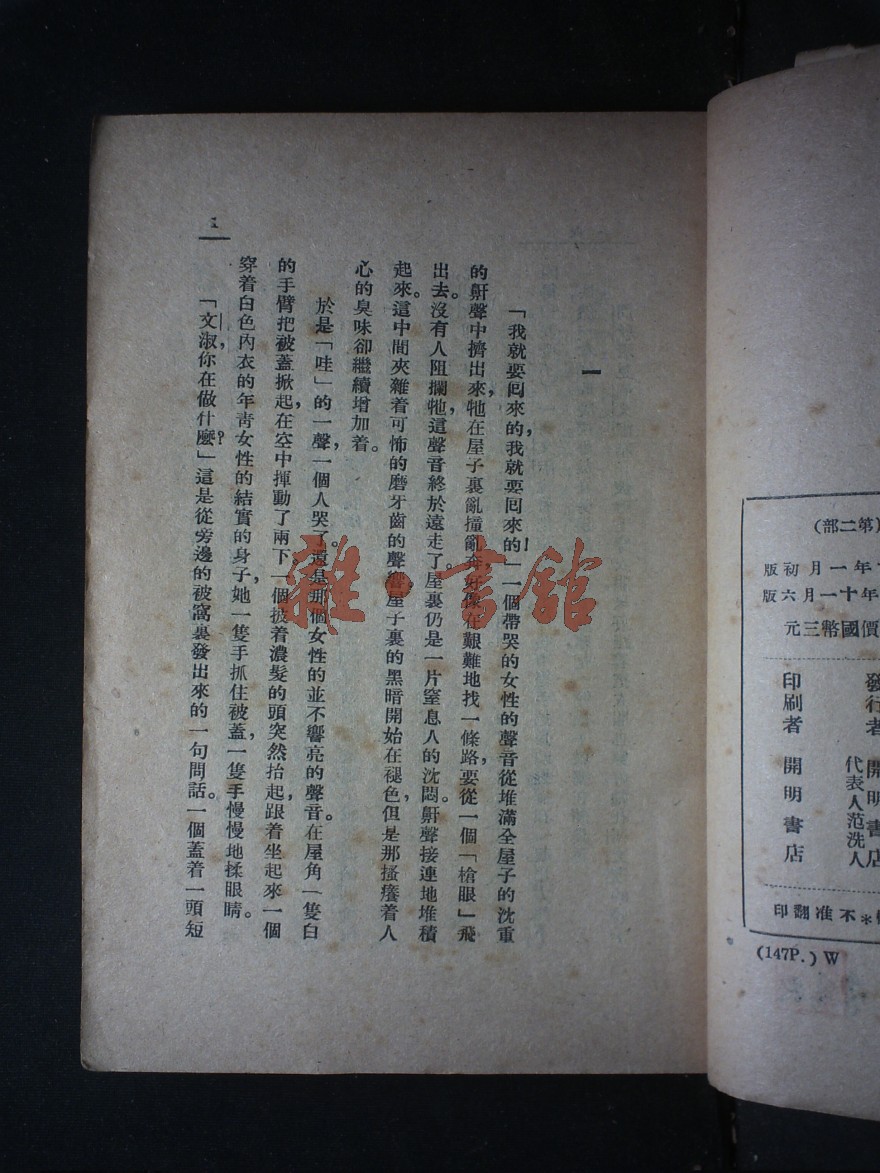 一
「我就要囘來的，我就要囘來的！」一個帶哭的女性的聲音從堆滿全屋子的沈重
的鼾聲中擠出來，牠在屋子裏亂撞亂奔，好像在艱難地找一條路，要從一個「槍眼」飛
出去。沒有人阻攔牠，這聲音終於遠走了。屋裏仍是一片窒息人的沈悶。鼾聲接連地堆積
起來。這中間夾雜着可怖的磨牙齒的聲響，屋子裏的黑暗開始在褪色，但是那搔癢着人
心的臭味卻繼續增加着。
於是「哇」的一聲，一個人哭了。還是那個女性的並不響亮的聲音。在屋角一隻白
的手臂把被蓋掀起，在空中揮動了兩下，一個披着濃髮的頭突然抬起，跟着坐起來一個
穿着白色內衣的年靑女性的結實的身子，她一隻手抓住被蓋，一隻手慢慢地揉眼睛。
「文淑，你在做什麼？」這是從旁邊的被窩裏發出來的一句問話。一個蓋着一頭短
1
(第二部)
年一月初版
年十一月六版
價國幣三元
發行者 開明書店
代表人范洗人
印刷者 開明書店
*不准翻印
(147P.) W
雜·書館